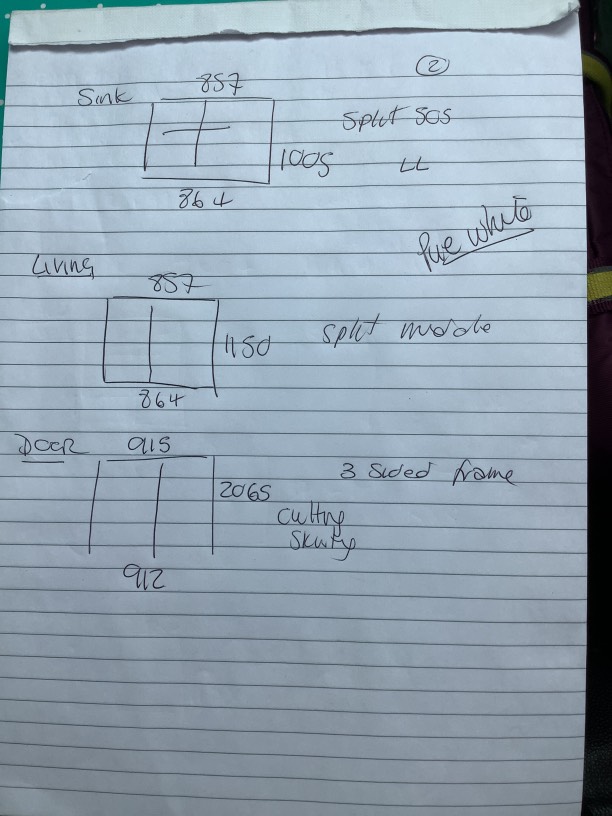 ②
Sink 857
Split 505
1005 LL
864
Pure white
Living
857
1150 split middle
864
DOOR 915
3 sided frame
2065
cutting
Skirting
912